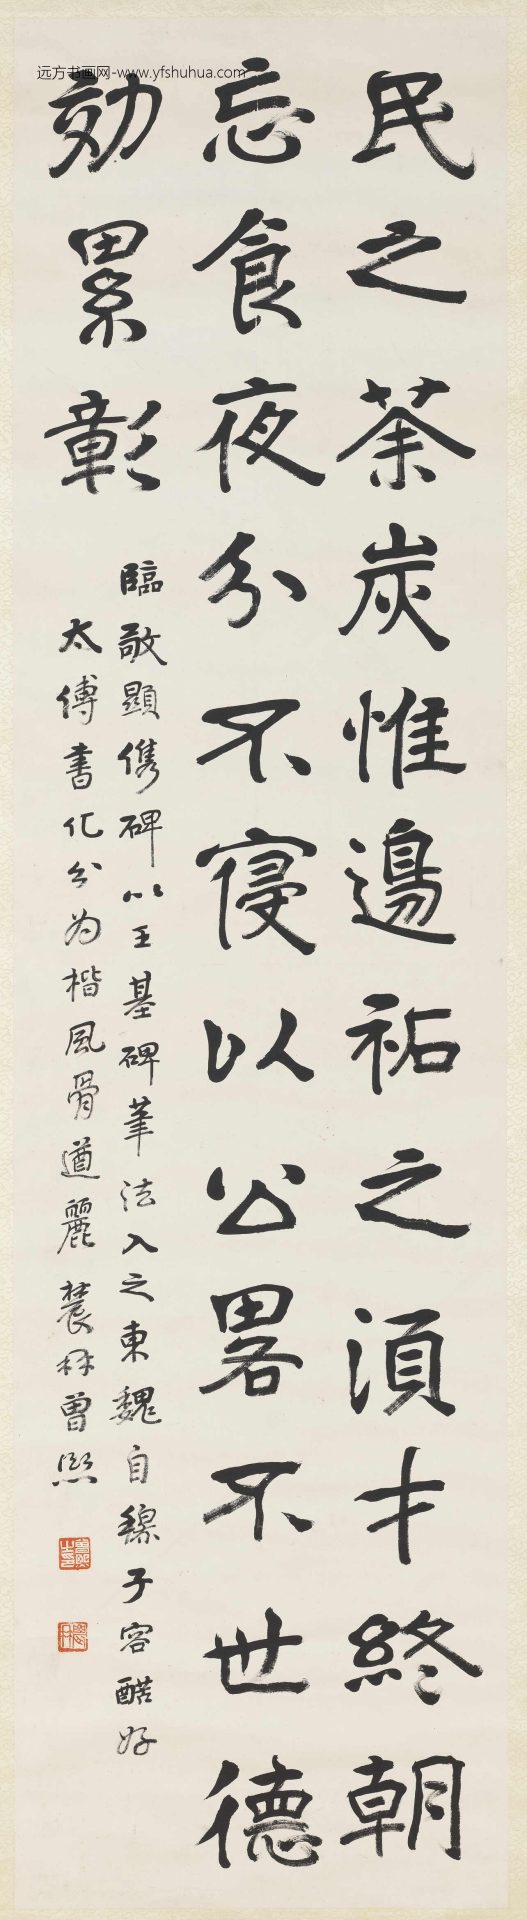 远方书画网-www.yfshuhua.com
民之荼炭惟邊祏之湏才終朝
忘食夜分不寑以公畧不世德
効累彰
臨敬顯儁碑以王基碑筆法入之東魏自穆子容酷好
太傅書化分为楷風骨遒麗農髯曾熙